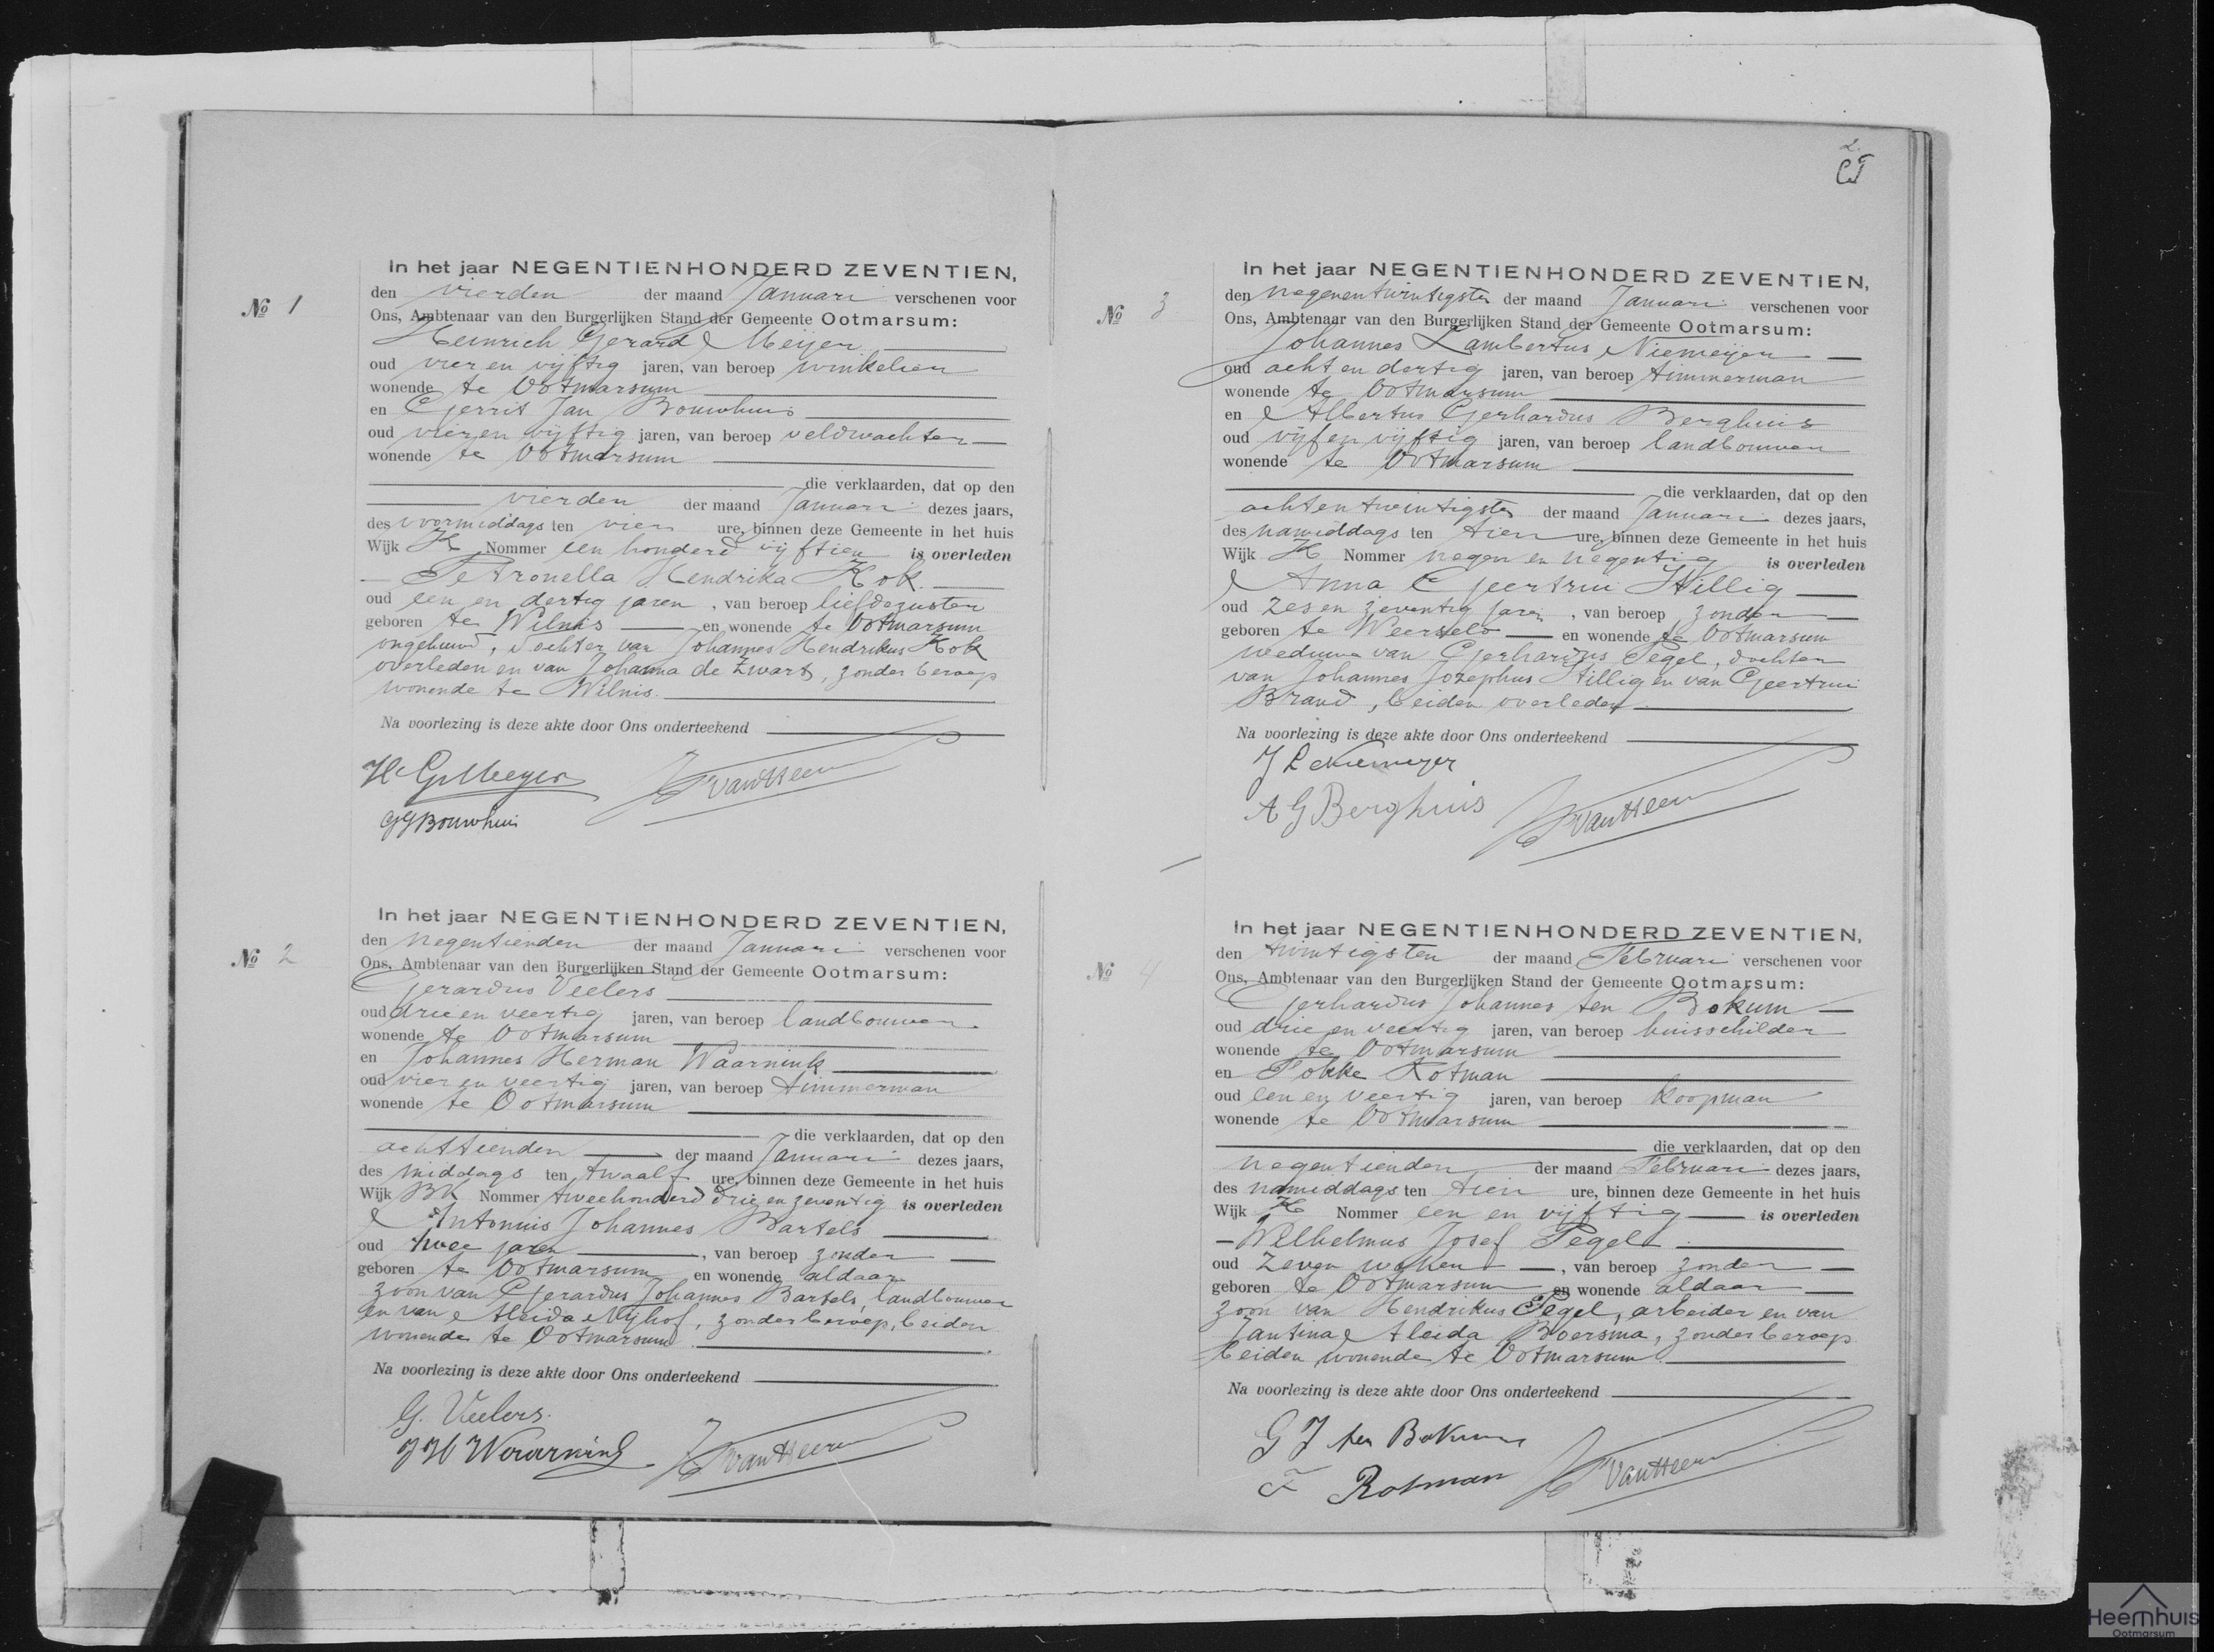 2.
No 1
In het jaar NEGENTIENHONDERD ZEVENTIEN,
den vierden der maand Januari verschenen voor
Ons, Ambtenaar van den Burgerlijken Stand der Gemeente Ootmarsum:
Heinrich Gerard Meijer
oud vier en vijftig jaren, van beroep winkelier
wonende te Ootmarsum
en Gerrit Jan Bouwhuis
oud vier en vijftig jaren, van beroep veldwachter
wonende te Ootmarsum
die verklaarden, dat op den
vierden der maand Januari dezes jaars,
des voormiddags ten vier ure, binnen deze Gemeente in het huis
Wijk H Nommer een honderd vijftien is overleden
Petronella Hendrika Kok.
oud een en dertig jaren, van beroep liefdezuster
geboren te Wilnis en wonende te Ootmarsum
ongehuwd, dochter van Johannes Hendrikus Kok
overleden en van Johanna de Zwart, zonder beroep
wonende te Wilnis.
Na voorlezing is deze akte door Ons onderteekend
H. G. Meyer
GJ Bouwhuis
van Heem
No 2
In het jaar NEGENTIENHONDERD ZEVENTIEN,
den negentienden der maand Januari verschenen voor
Ons, Ambtenaar van den Burgerlijken Stand der Gemeente Ootmarsum:
Gerardus Veelers
oud drie en veertig jaren, van beroep landbouwer
wonende te Ootmarsum
en Johannes Herman Waarnink
oud vier en veertig jaren, van beroep timmerman
wonende te Ootmarsum
die verklaarden, dat op den
achttienden der maand Januari dezes jaars,
des middags ten twaalf ure, binnen deze Gemeente in het huis
Wijk BK Nommer tweehonderd drie en zeventig is overleden
Antonius Johannes Bartels
oud twee jaren, van beroep zonder
geboren te Ootmarsum en wonende aldaar
zoon van Gerardus Johannes Bartels, landbouwer
en van Aleida Nijhof, zonder beroep, beiden
wonende te Ootmarsum.
Na voorlezing is deze akte door Ons onderteekend
G. Veelers.
J H Waarnink
van Heem
No 3
In het jaar NEGENTIENHONDERD ZEVENTIEN,
den negenentwintigsten der maand Januari verschenen voor
Ons, Ambtenaar van den Burgerlijken Stand der Gemeente Ootmarsum:
Johannes Lambertus Niemeijer
oud acht en dertig jaren, van beroep timmerman
wonende te Ootmarsum
en Albertus Gerhardus Berghuis
oud vijf en vijftig jaren, van beroep landbouwer
wonende te Ootmarsum
die verklaarden, dat op den
achtentwintigsten der maand Januari dezes jaars,
des namiddags ten tien ure, binnen deze Gemeente in het huis
Wijk H Nommer negen en negentig is overleden
Anna Geertrui Hillig
oud zes en zeventig jaren, van beroep zonder
geboren te Weerselo en wonende te Ootmarsum
weduwe van Gerhardus Pegel, dochter
van Johannes Josephus Hillig en van Geertrui
Brand, beiden overleden
Na voorlezing is deze akte door Ons onderteekend
J L Niemeyer
A G Berghuis
van Heem
No 4
In het jaar NEGENTIENHONDERD ZEVENTIEN,
den twintigsten der maand Februari verschenen voor
Ons, Ambtenaar van den Burgerlijken Stand der Gemeente Ootmarsum:
Gerhardus Johannes ten Bokum
oud drie en veertig jaren, van beroep huisschilder
wonende te Ootmarsum
en Fokke Rotman
oud een en veertig jaren, van beroep koopman
wonende te Ootmarsum
die verklaarden, dat op den
negentienden der maand Februari dezes jaars,
des namiddags ten tien ure, binnen deze Gemeente in het huis
Wijk H Nommer een en vijftig is overleden
Wilhelmus Josef Pegel
oud zeven weken, van beroep zonder
geboren te Ootmarsum en wonende aldaar
zoon van Hendrikus Pegel, arbeider en van
Jantina Aleida Boersma, zonder beroep
beiden wonende te Ootmarsum.
Na voorlezing is deze akte door Ons onderteekend
G J ten Bokum
F Rotman
van Heem
Heemhuis
Ootmarsum